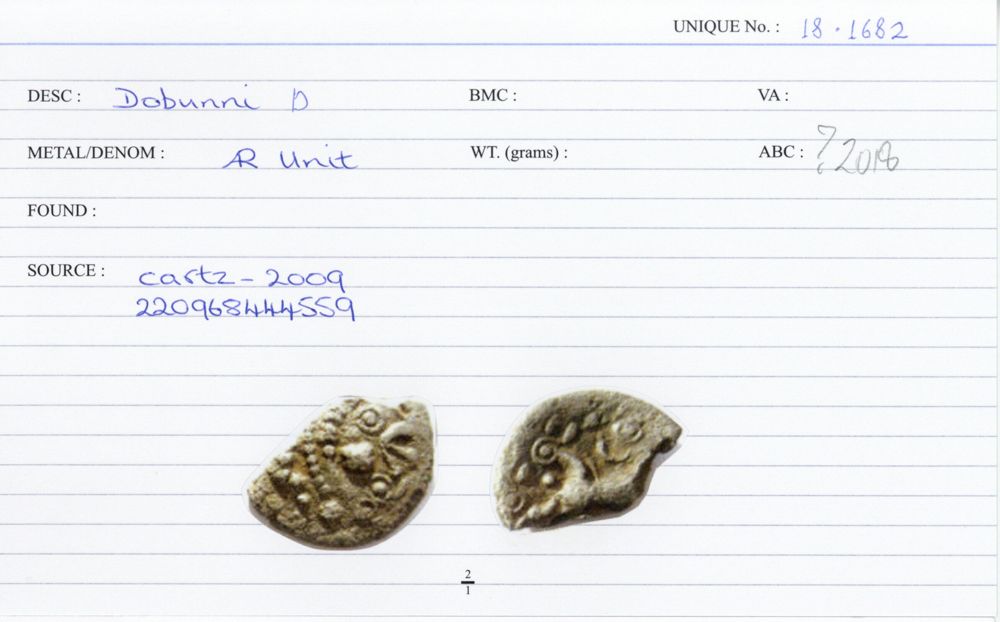 UNIQUE No. : 18.1682
DESC : Dobunni D BMC : VA :
METAL/DENOM : AR Unit WT. (grams) : ABC : ? 2018
FOUND :
SOURCE : cartz-2009
220968444559
2
1